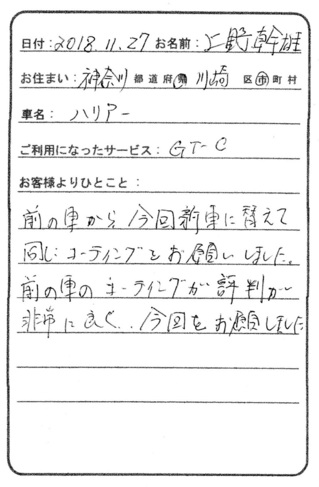 日付:2018.11.27 お名前:上野幹雄
お住まい:神奈川 都道府県 川崎 区市町村
車名:ハリアー
ご利用になったサービス:GT-C
お客様よりひとこと:
前の車から今回新車に替えて
同じコーティングをお願いしました。
前の車のコーティングが評判が
非常に良く..今回をお願しました